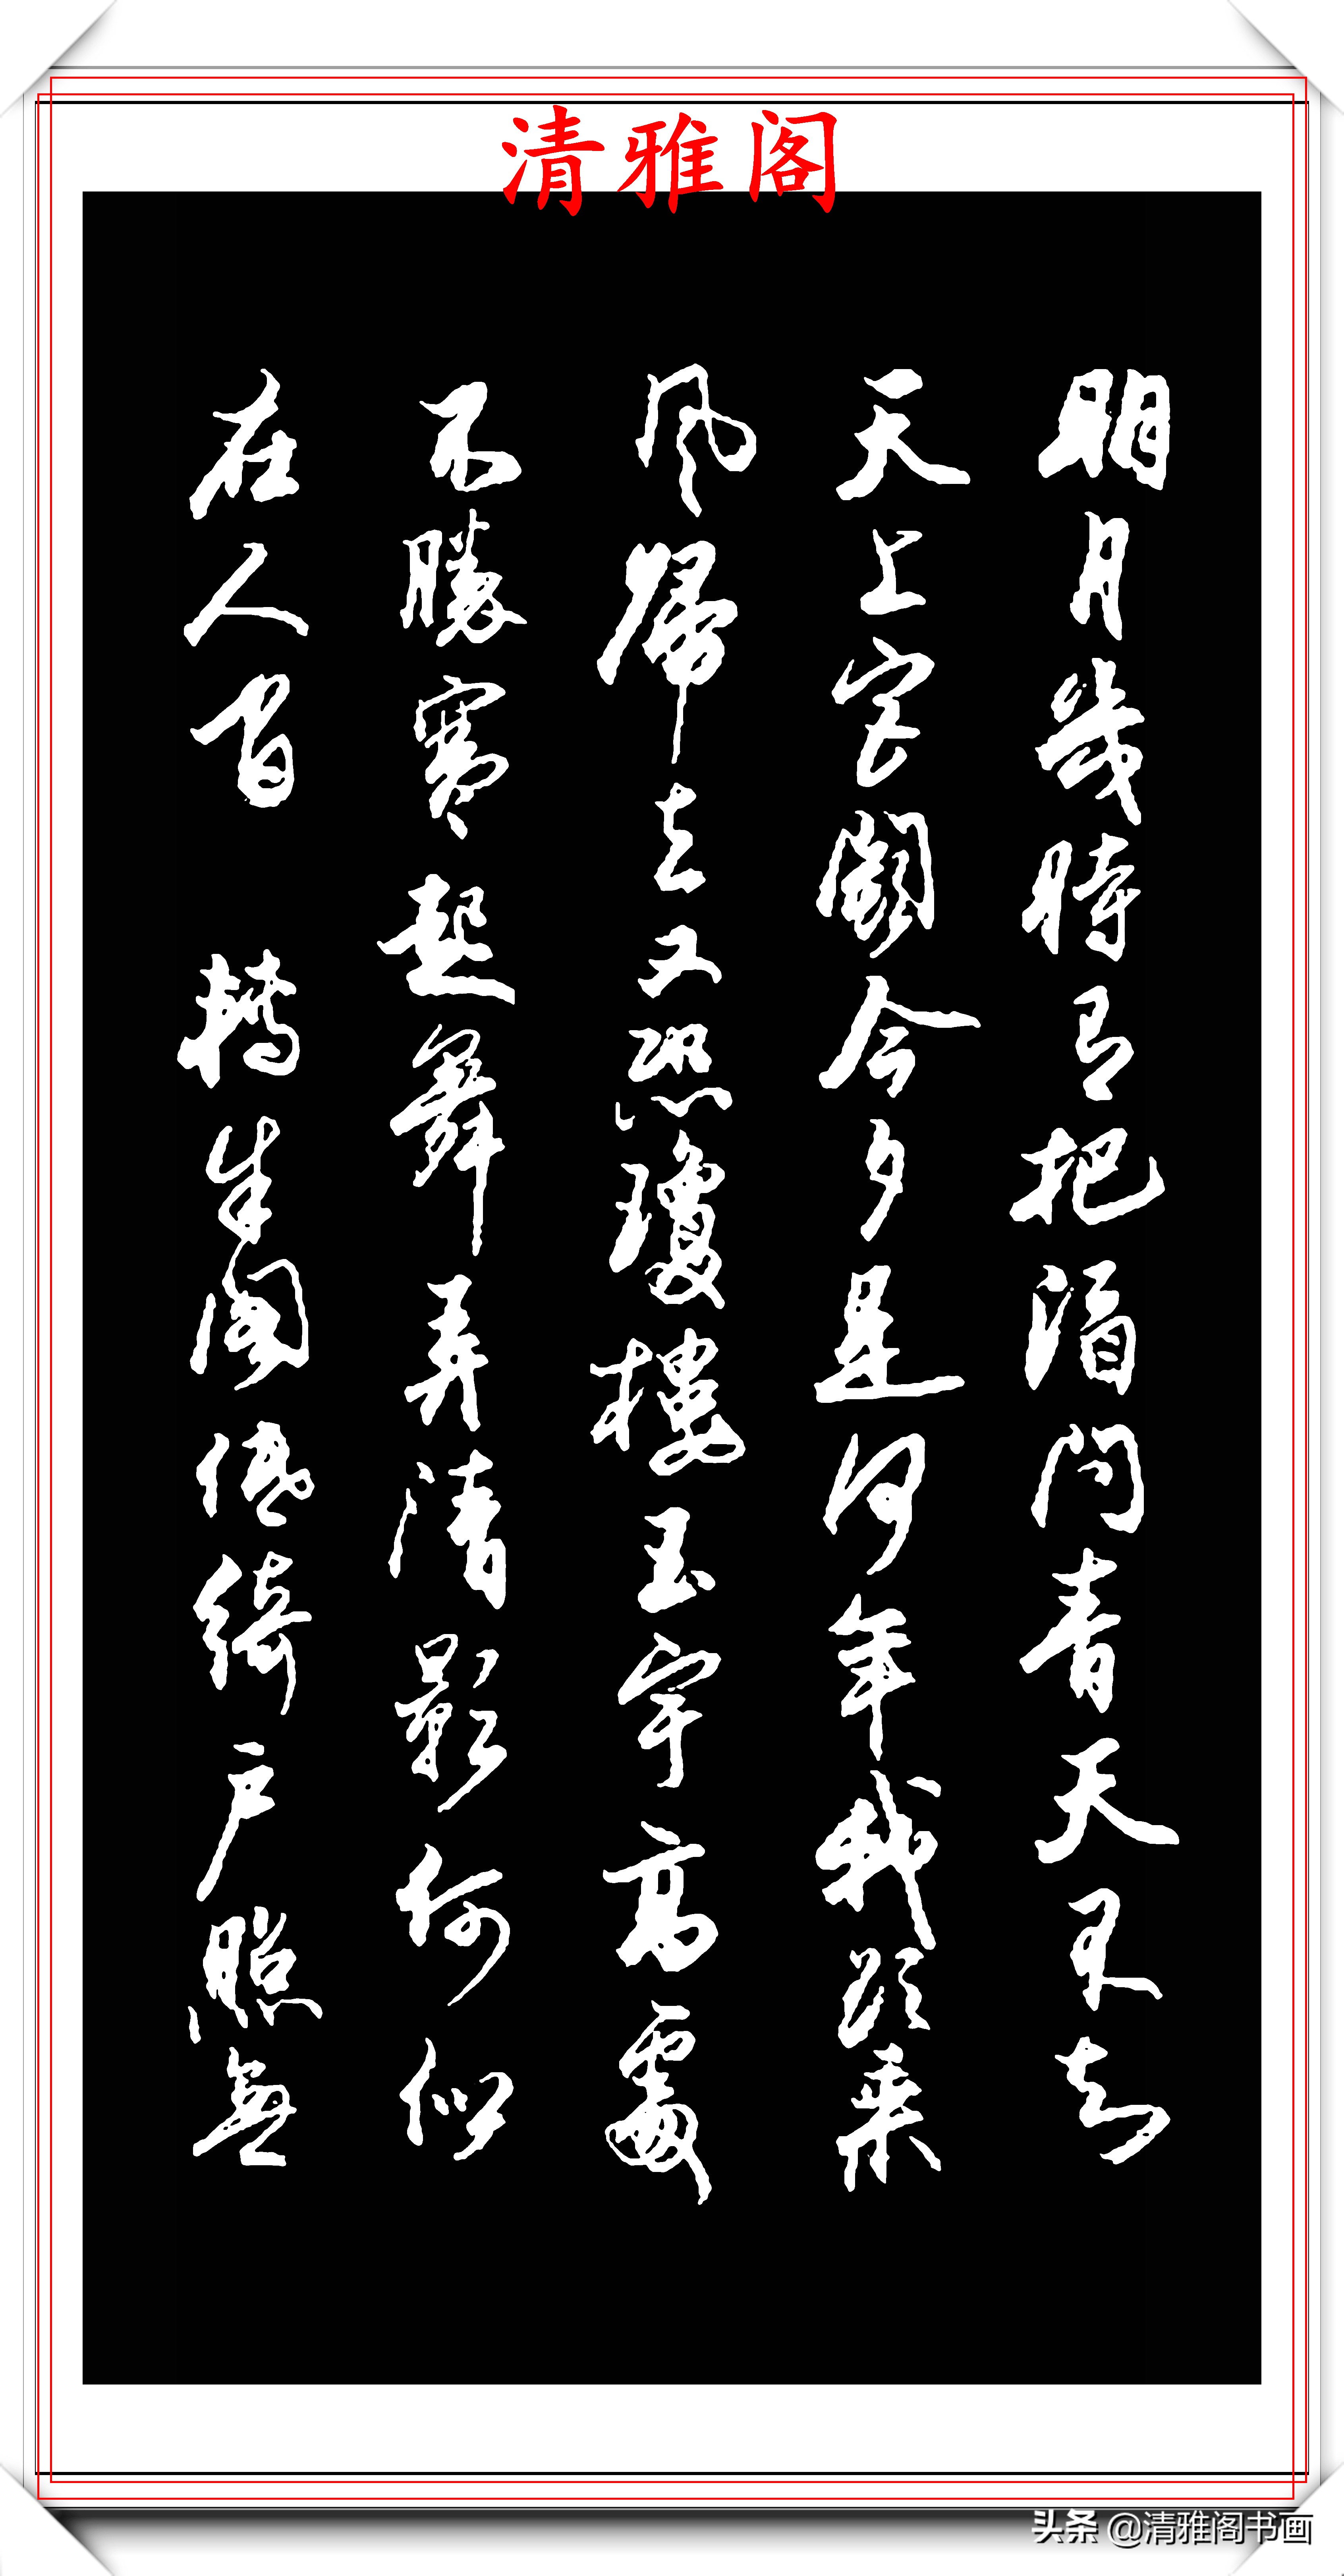 清雅阁
明月幾時有把酒問青天不知
天上宮闕今夕是何年我欲乘
風歸去又恐瓊樓玉宇高處
不勝寒起舞弄清影何似
在人間 轉朱閣低綺戶照無
头条 @清雅阁书画